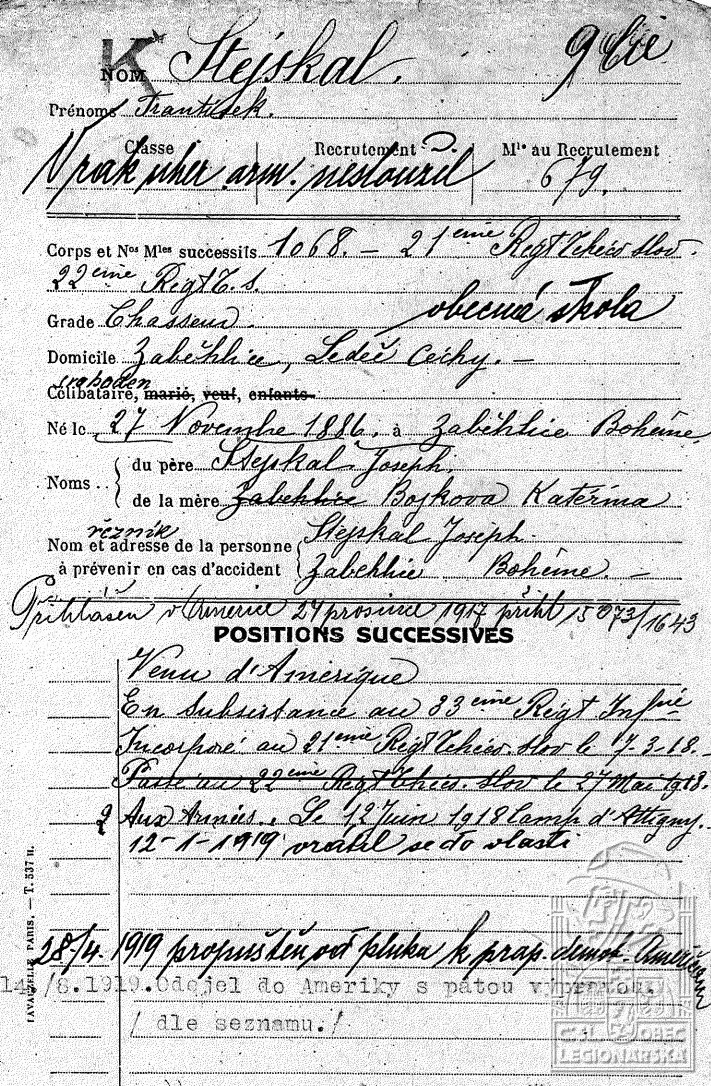 K
NOM Stejskal. 9 Cie
Prénoms František.
Classe Recrutement Mle au Recrutement
V rak uher. arm. nesloužil 679.
Corps et Nos Mles successifs 1068. — 21ème Regt Tchéco Slov.
22ème Regt T. s.
Grade Chasseur. obecná škola
Domicile Zaběhlice, Ledeč Čechy. —
svoboden
Célibataire, marié, veuf, enfants
Né le 27 Novembre 1886. à Zaběhlice Bohême
Noms .. du père Stejskal Joseph.
de la mère Zabehlice Bojkova Katérina
řezník
Nom et adresse de la personne Stejskal Joseph.
à prévenir en cas d'accident Zabehlice Bohême. —
Přihlášen v Americe 24 prosince 1917 přihl 15073/1643
POSITIONS SUCCESSIVES
Venu d'Amérique
En Subsistance au 33ème Régt Infrie
Incorporé au 21ème Régt Tchéco. slov le 7-3-18-
Passé au 22ème Regt Tchéco. Slov le 27 Mai 1918.
2 Aux Armées. Le 12 Juin 1918 Camp d'Attigny.
12-1-1919 vrátil se do vlasti
28/4. 1919 propuštěn od pluku k prap. demob. Američanů
14./8.1919.Odejel do Ameriky s pátou výpravou
/ dle seznamu./
LAVAUZELLE PARIS. — T. 537 n.
ČSL. OBEC
LEGIONÁŘSKÁ